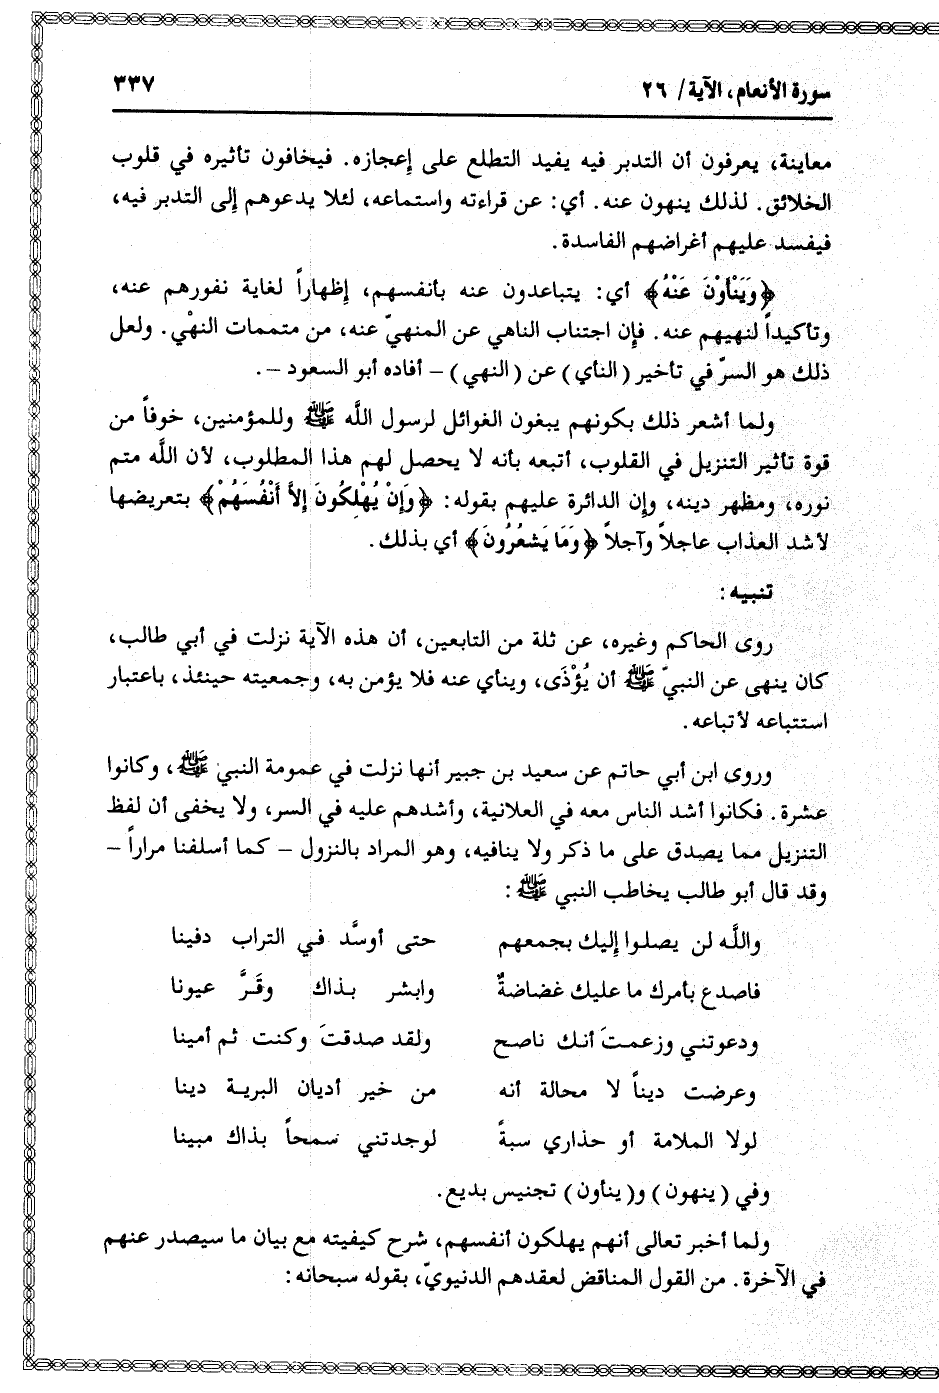 سورة الأنعام، الآية/ ٢٦
٣٣٧
معاينة، يعرفون أن التدبر فيه يفيد التطلع على إعجازه. فيخافون تأثيره في قلوب
الخلائق. لذلك ينهون عنه. أي: عن قراءته واستماعه، لئلا يدعوهم إلى التدبر فيه،
فيفسد عليهم أغراضهم الفاسدة.
﴿وَيَنْأَوْنَ عَنْهُ﴾ أي: يتباعدون عنه بأنفسهم، إظهاراً لغاية نفورهم عنه،
وتأكيداً لنهيهم عنه. فإن اجتناب الناهي عن المنهيّ عنه، من متممات النهْي. ولعل
ذلك هو السرّ في تأخير (النأي) عن (النهي) – أفاده أبو السعود –.
ولما أشعر ذلك بكونهم يبغون الغوائل لرسول اللَّه ﷺ وللمؤمنين، خوفاً من
قوة تأثير التنزيل في القلوب، أتبعه بأنه لا يحصل لهم هذا المطلوب، لأن اللَّه متم
نوره، ومظهر دينه، وإن الدائرة عليهم بقوله: ﴿وَإِنْ يُهْلِكُونَ إِلاَّ أَنْفُسَهُمْ﴾ بتعريضها
لأشد العذاب عاجلاً وآجلاً ﴿وَمَا يَشعُرُونَ﴾ أي بذلك.
تنبيه:
روى الحاكم وغيره، عن ثلة من التابعين، أن هذه الآية نزلت في أبي طالب،
كان ينهى عن النبيّ ﷺ أن يُؤْذَى، وينأي عنه فلا يؤمن به، وجمعيته حينئذ، باعتبار
استتباعه لأتباعه.
وروى ابن أبي حاتم عن سعيد بن جبير أنها نزلت في عمومة النبي ﷺ، وكانوا
عشرة. فكانوا أشد الناس معه في العلانية، وأشدهم عليه في السر، ولا يخفى أن لفظ
التنزيل مما يصدق على ما ذكر ولا ينافيه، وهو المراد بالنزول – كما أسلفنا مراراً –
وقد قال أبو طالب يخاطب النبي ﷺ:
واللَّه لن يصلوا إليك بجمعهم حتى أوسَّد في التراب دفينا
فاصدع بأمرك ما عليك غضاضةٌ وابشر بذاك وقَرَّ عيونا
ودعوتني وزعمتَ أنك ناصح ولقد صدقتَ وكنت ثم أمينا
وعرضت ديناً لا محالة أنه من خير أديان البرية دينا
لولا الملامة أو حذاري سبةً لوجدتني سمحاً بذاك مبينا
وفي (ينهون) و(ينأون) تجنيس بديع.
ولما أخبر تعالى أنهم يهلكون أنفسهم، شرح كيفيته مع بيان ما سيصدر عنهم
في الآخرة. من القول المناقض لعقدهم الدنيويّ، بقوله سبحانه: